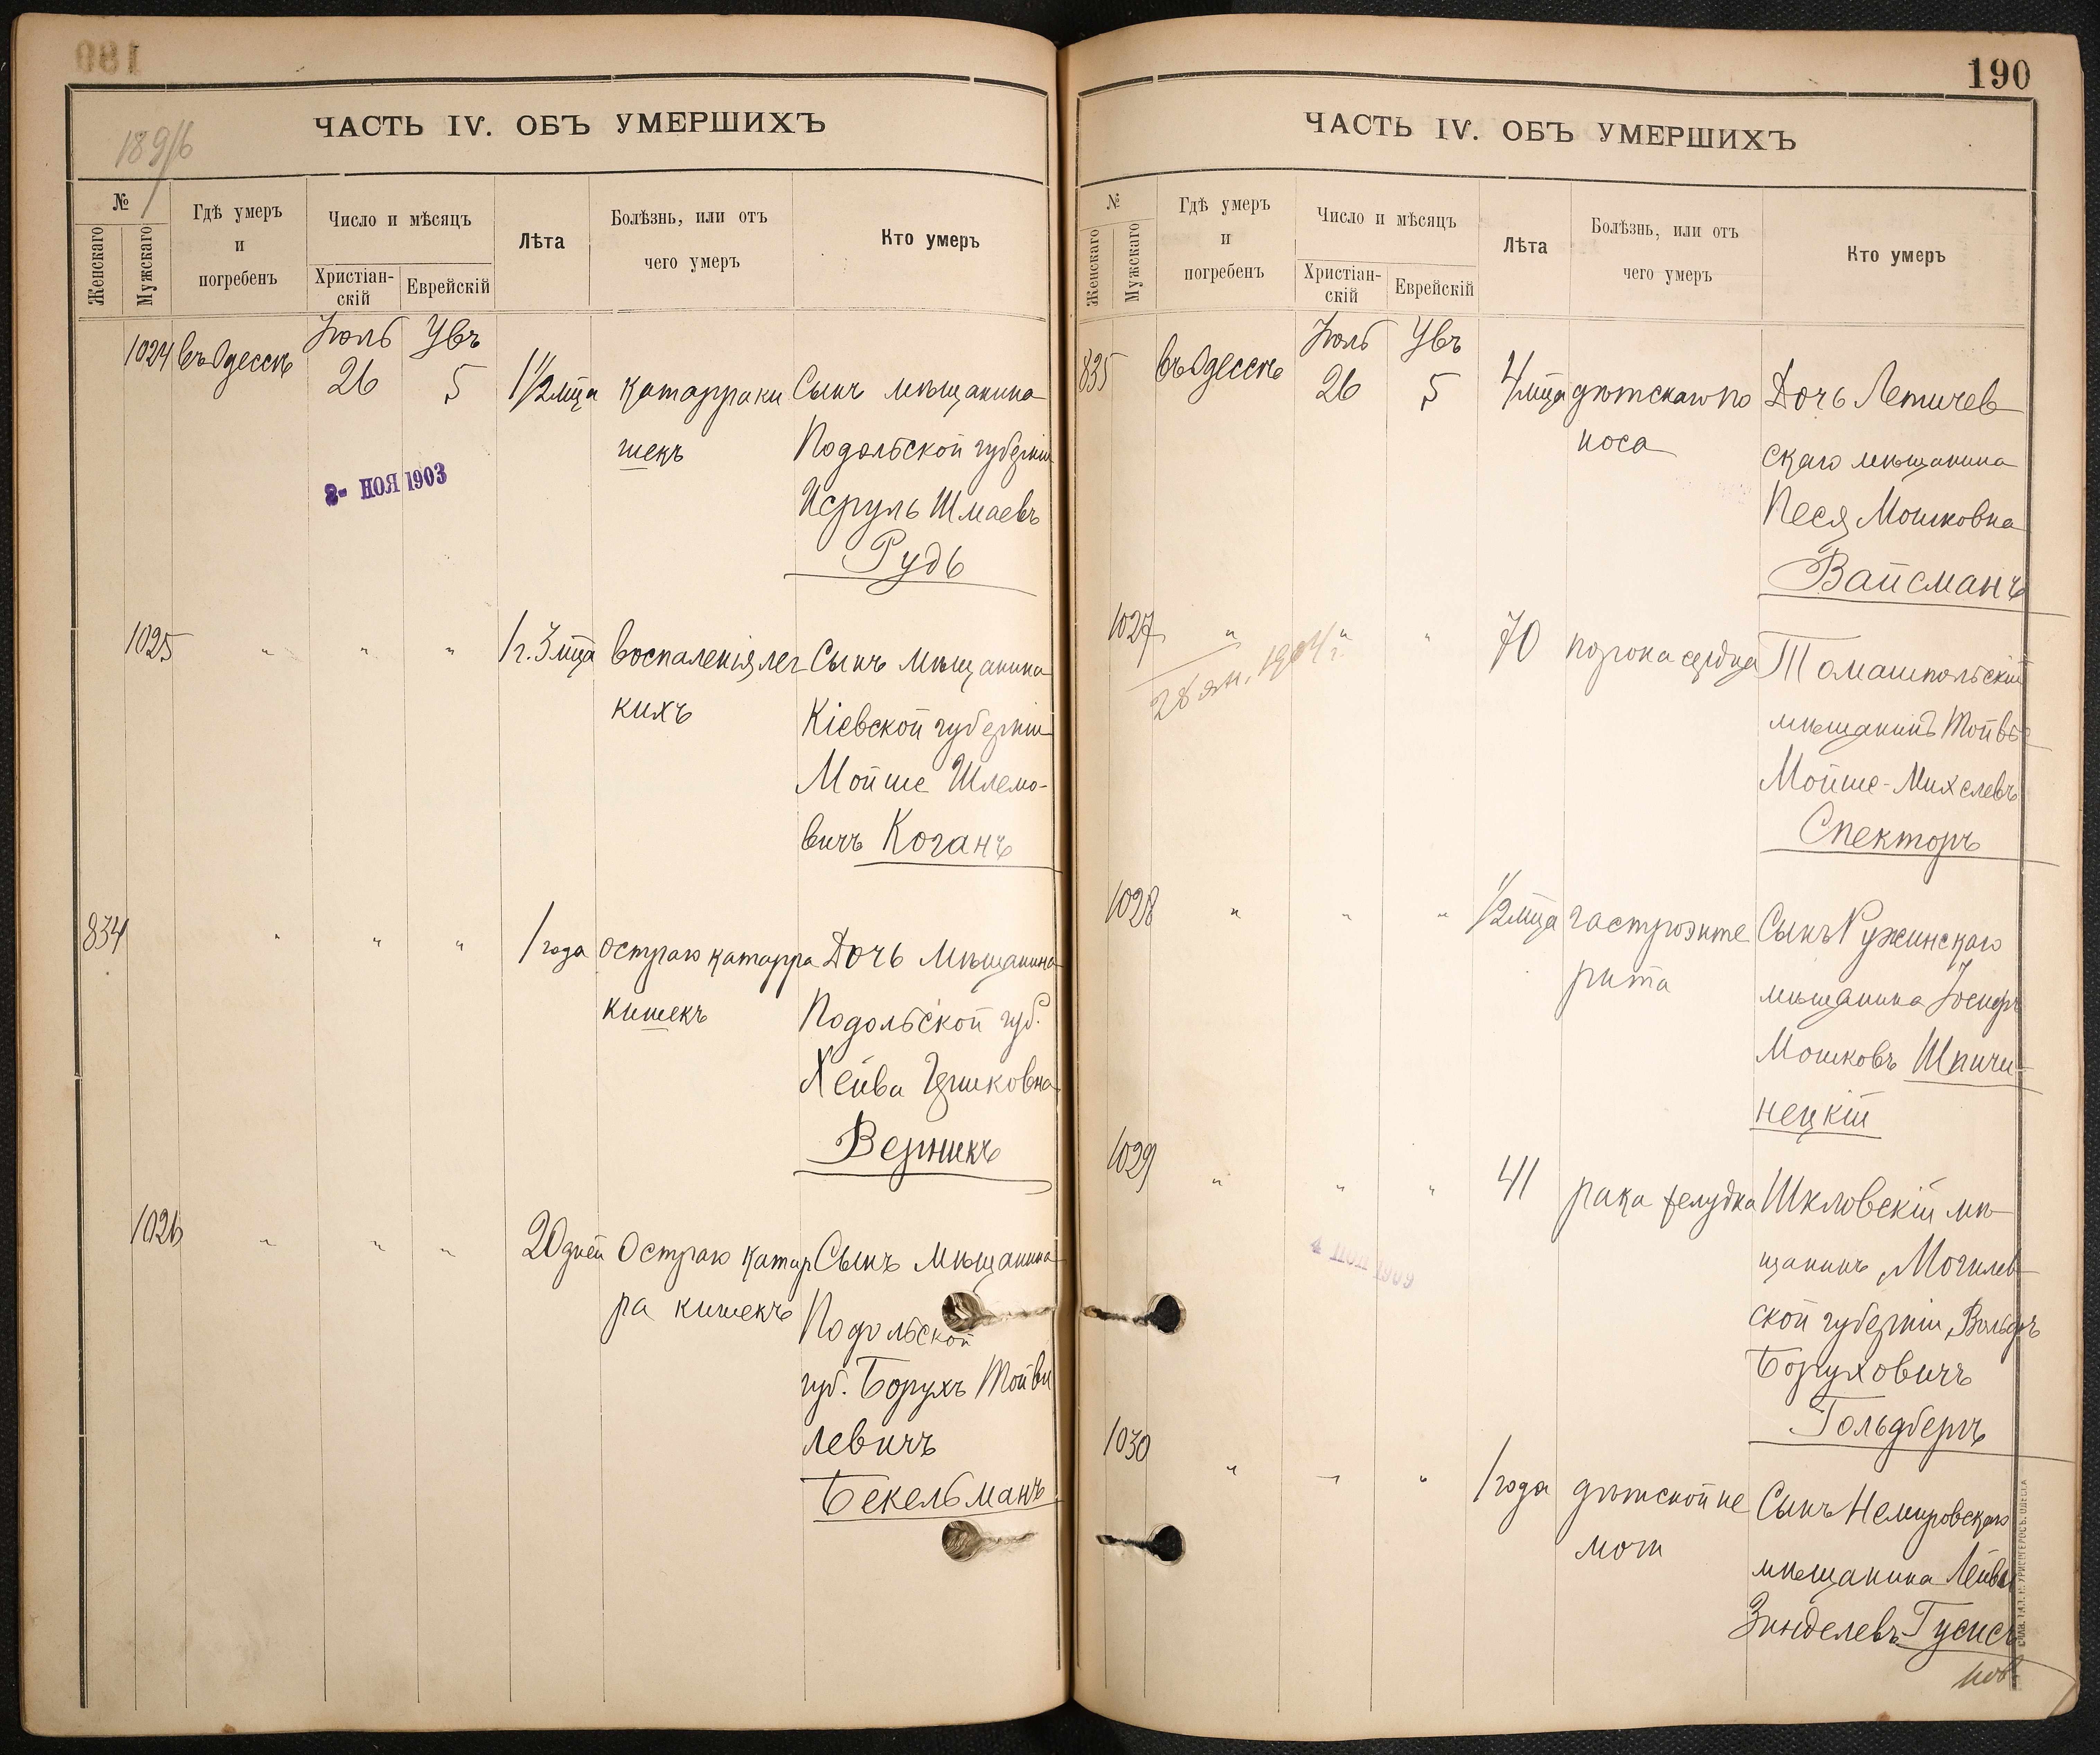 190
ЧАСТЬ IV. ОБЪ УМЕРШИХЪ
1896
№
Женскаго
Мужскаго
Гдѣ умеръ
и
погребенъ
Число и мѣсяцъ
Христіан-
скій
Еврейскій
Лѣта
Болѣзнь, или отъ
чего умеръ
Кто умеръ
1024 въ Одессѣ
Іюль
26
Увъ
5
1 1/2 мца
катарра ки
шекъ
Сынъ мѣщанина
Подольской губерніи
Исруль Шмаевъ
Рудь
НОЯ 1903
1025 " " "
1 г. 3 мца
воспаленія лег
кихъ
Сынъ мѣщанина
Кіевской губерніи
Мойше Шлемо-
вичъ Коганъ
834 " " "
1 года
остраго катарра
кишекъ
Дочь мѣщанина
Подольской губ.
Хейва Ицковна
Верникъ
1026 " " "
20 дней
Остраго катар
ра кишекъ
Сынъ мѣщанина
Подольской
губ. Борухъ Той
левичъ
Бекельманъ
190
ЧАСТЬ IV. ОБЪ УМЕРШИХЪ
№
Женскаго
Мужскаго
Гдѣ умеръ
и
погребенъ
Число и мѣсяцъ
Христіан-
скій
Еврейскій
Лѣта
Болѣзнь, или отъ
чего умеръ
Кто умеръ
835 въ Одессѣ
Іюль
26
Увъ
5
4 мца
дѣтскаго по
носа
Дочь Летичев
скаго мѣщанина
Песя Мошковна
Вайсманъ
1027 " " "
28 ян. 1904 г.
70
порока сердца
Томашпольскій
мѣщанинъ Тойвье
Мойше-Михелевъ
Спекторъ
1028 " " "
1/2 мца
гастроэнте
рита
Сынъ Ружинскаго
мѣщанина Іосифъ
Мошковъ Шпичи-
нецкій
1029 " " "
41
рака желудка
Шкловскій мѣ
щанинъ, Могилев
ской губерніи, Вольфъ
Боруховичъ
Гольдбергъ
4 НОЯ 1909
1030 " " "
1 года
дѣтской не
мочи
Сынъ Немировскаго
мѣщанина Лейви
Зинделевъ Гусис
нов